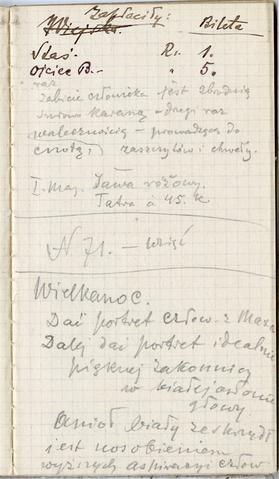 Zapłaciły:
Wiejska. Bileta
Staś. R. 1.
Ojciec B.— " 5.
raz
Zabicie człowieka jest zbrodnią
śmierc karaną — drugi raz
walecznością — prowadzącą do
cnoty, zaszczytów i chwały.
I. Maj. Jawa różowy.
Tatra a 45. K
N 71. — wziąć
Wielkanoc.
Dać portret człow. z
Dalej dać portret idealnie
pięknej zakonnicy
w białej osłonie
głowy
Anioł biały ze skrzydł
jest uosobieniem
wyższych aspiracyi człow